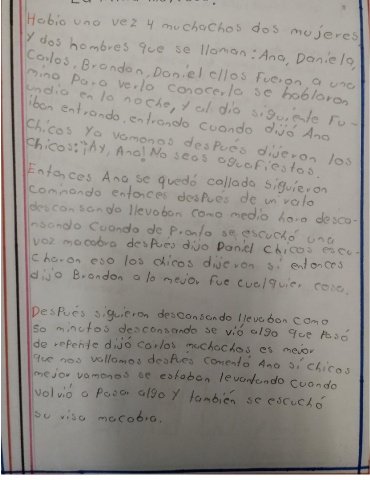 Había una vez 4 muchachos dos mujeres
y dos hombres que se llaman: Ana, Daniela,
Carlos, Brandon, Daniel ellos fueron a una
mina para verla conocerla se hablaron
un dia en la noche, y al dia siguiente fu-
iban entrando, entrando cuando dijó Ana
Chicos ya vamonos despues dijeron los
Chicos: ¡Ay, Ana! No seas aguafiestas.
Entonces Ana se quedó callada siguieron
caminando entonces despues de un rato
descansando llevaban como media hora desca-
nsando cuando de pronto se escuchó una
voz macabra despues dijo Daniel chicos escu-
charon eso los chicos dijeron si entonces
dijo Brandon a lo mejor fue cualquier cosa.
Después siguieron descansando llevaban como
50 minutos descansando se vió algo que pasó
de repente dijó Carlos muchachos es mejor
que nos vallamos despues comentó Ana si chicos
mejor vamonos se estaban levantando cuando
volvió a pasar algo y también se escuchó
su risa macabra.